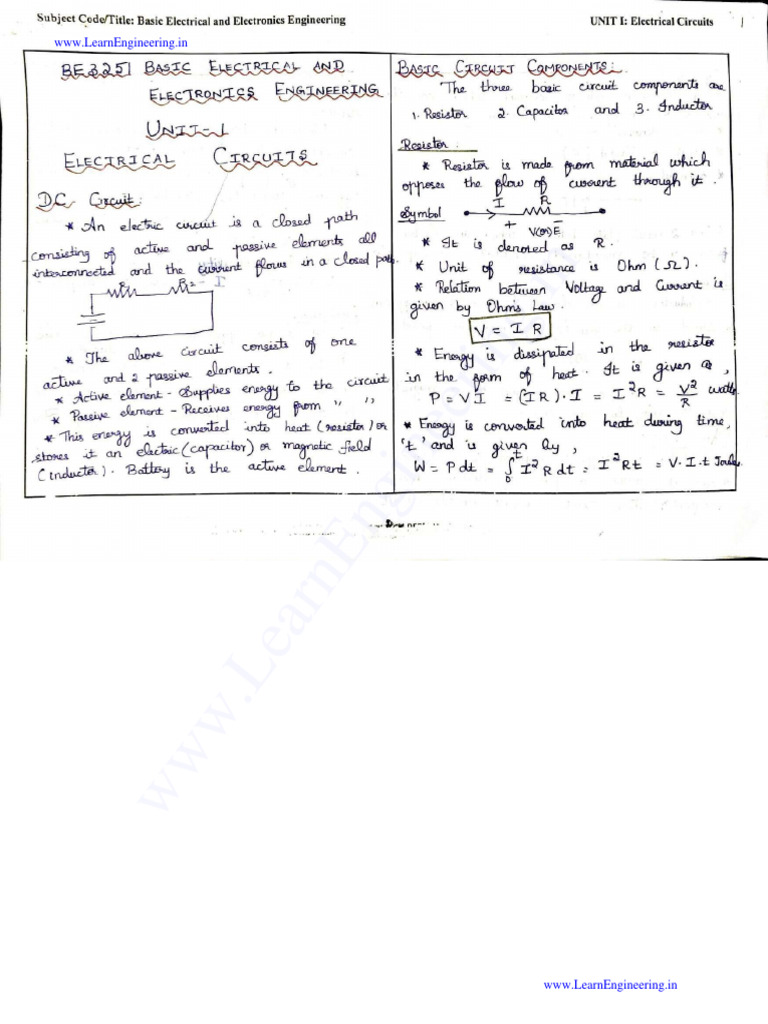 Subject Code/Title: Basic Electrical and Electronics Engineering
UNIT I: Electrical Circuits
1
www.LearnEngineering.in
BE3251 BASIC ELECTRICAL AND
ELECTRONICS ENGINEERING
UNIT-1
ELECTRICAL CIRCUITS
D.C Circuit:
* An electric circuit is a closed path
consisting of active and passive elements all
interconnected and the current flows in a closed path.
R1
R2
I
* The above circuit consists of one
active and 2 passive elements.
* Active element - Supplies energy to the circuit
* Passive element - Receives energy from " "
* This energy is converted into heat (resistor) or
stores it an electric (capacitor) or magnetic field
(inductor). Battery is the active element.
BASIC CIRCUIT COMPONENTS:
The three basic circuit components are
1. Resistor 2. Capacitor and 3. Inductor
Resistor:
* Resistor is made from material which
opposes the flow of current through it.
Symbol
I R
+ V(or)E -
* It is denoted as R.
* Unit of resistance is Ohm (Ω).
* Relation between Voltage and Current is
given by Ohm's Law.
V = I R
* Energy is dissipated in the resistor
in the form of heat. It is given as,
P = V I = (I R) · I = I²R = V²/R watts
* Energy is converted into heat during time,
't' and is given by,
W = P dt = ∫₀ᵗ I² R dt = I² R t = V · I · t Joules
www.LearnEngineering.in
www.LearnEngineering.in